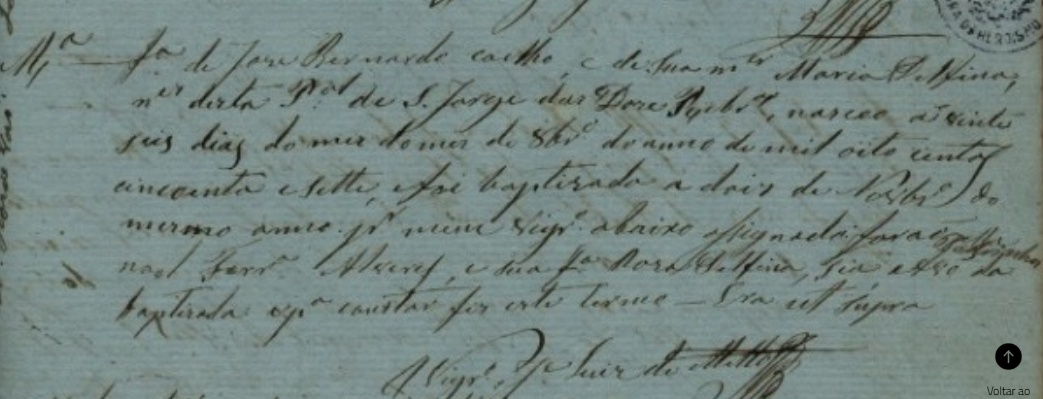 Mª fª de Jose Bernardo coelho, e de sua mer Maria Delfina,
nes desta Pal de S. Jorge das Doze Ribrª, nasceo a vinte
seis dias do mes do mes de 8brº do anno de mil oito centos
cincoenta e sette, e foi baptizada a dois de Novbrº do
mesmo anno pr mim Vigrº abaixo assignado: forão
Ferrª Alvares, e sua fª Rosa Delfina, tia e Avo da
baptizada: e pª constar fiz este termo — Era ut supra
Vigrº Je Luiz de Mello
Voltar ao